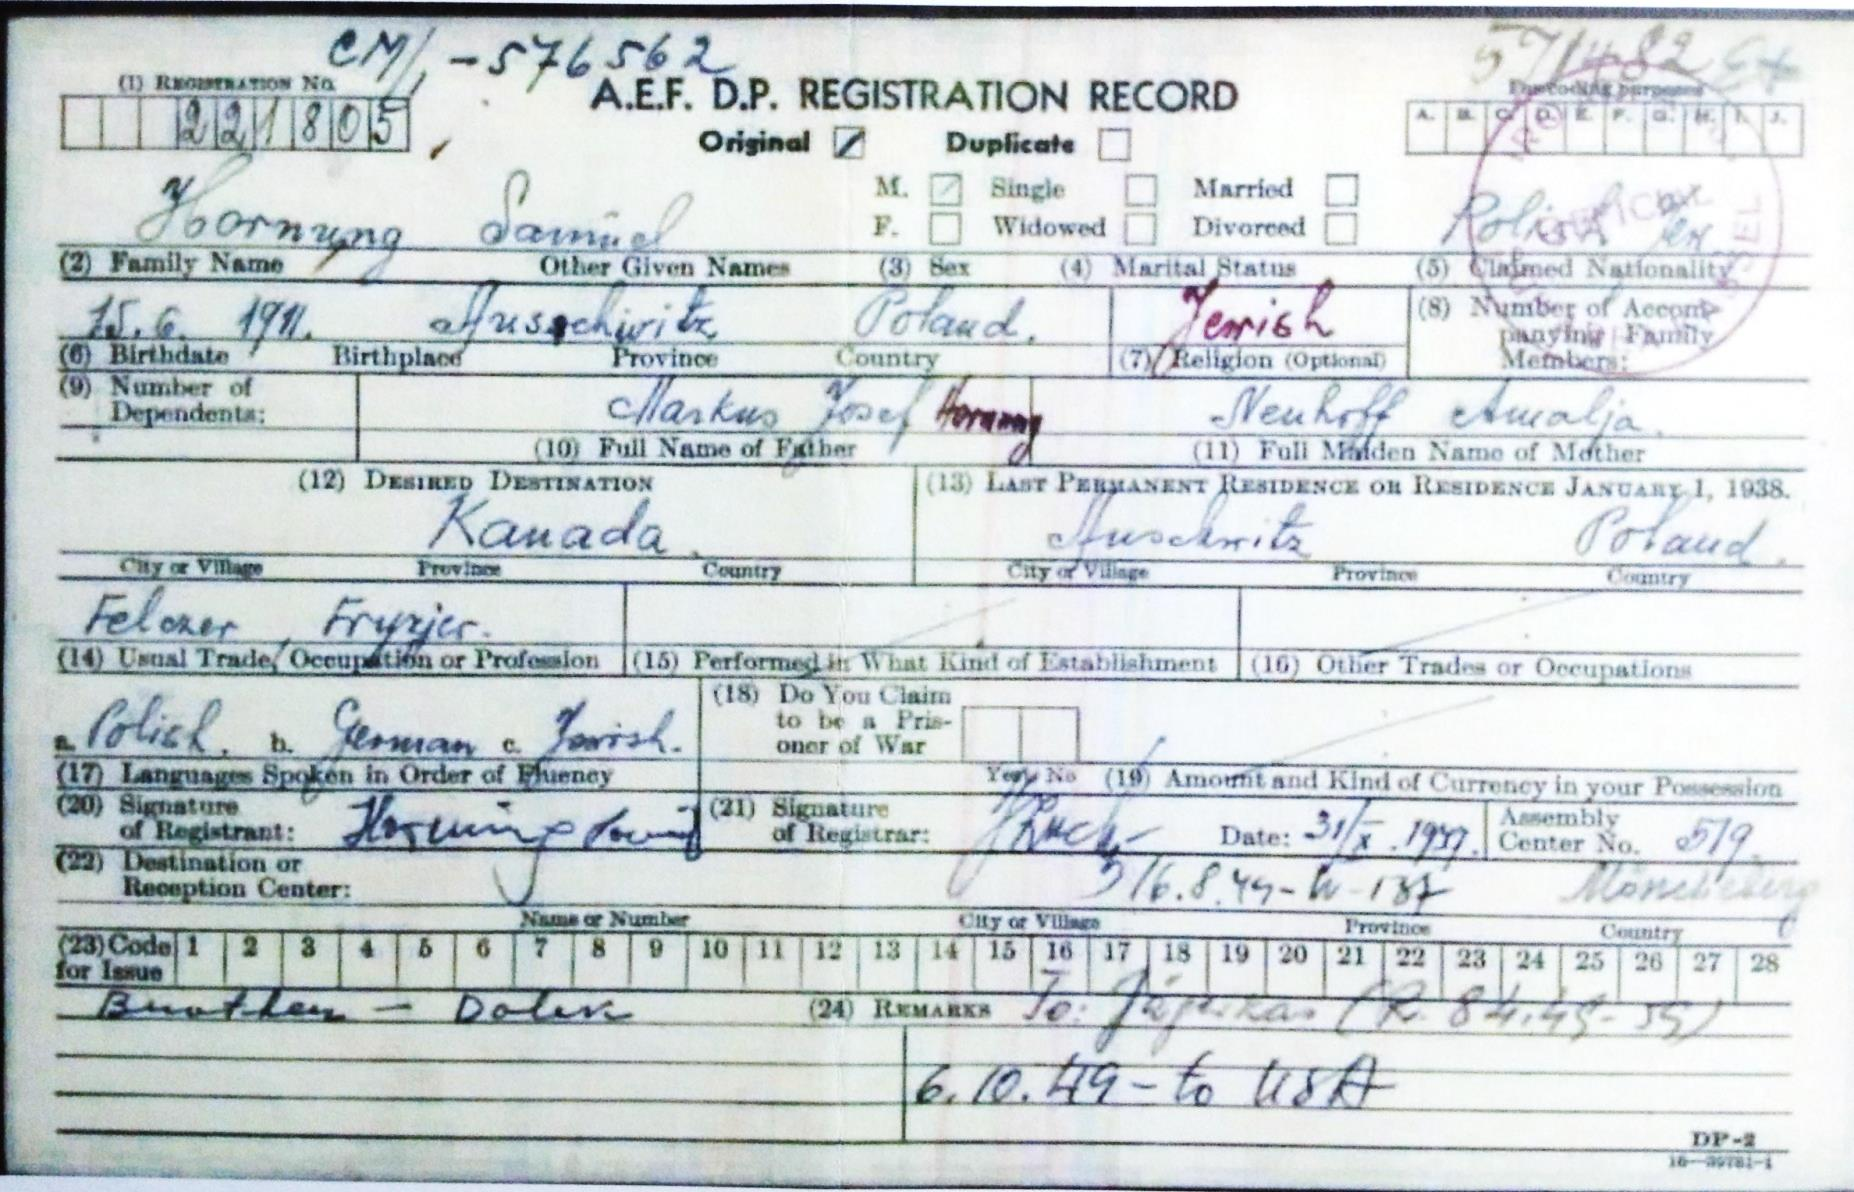 CM/1 -576562
571482
(1) REGISTRATION No.
221805
A.E.F. D.P. REGISTRATION RECORD
For coding purposes
A. B. C. D. E. F. G. H. I. J.
Original Duplicate
M. Single Married
F. Widowed Divorced
Hornung Samuel Polish
(2) Family Name Other Given Names (3) Sex (4) Marital Status (5) Claimed Nationality
15.6. 1911. Auschwitz Poland. Jewish
(8) Number of Accompanying Family Members:
(6) Birthdate Birthplace Province Country (7) Religion (Optional)
(9) Number of Dependents:
Markus Josef Hornung Neuhoff Amalja.
(10) Full Name of Father (11) Full Maiden Name of Mother
(12) DESIRED DESTINATION (13) LAST PERMANENT RESIDENCE OR RESIDENCE JANUARY 1, 1938.
Kanada. Auschwitz Poland.
City or Village Province Country City or Village Province Country
Felczer, Fryzjer.
(14) Usual Trade, Occupation or Profession (15) Performed in What Kind of Establishment (16) Other Trades or Occupations
a. Polish. b. German c. Jewish.
(18) Do You Claim to be a Prisoner of War
(17) Languages Spoken in Order of Fluency Yes No (19) Amount and Kind of Currency in your Possession
(20) Signature of Registrant: Hornung (21) Signature of Registrar: Date: 31/X. 1947. Assembly Center No. 519.
(22) Destination or Reception Center: 16.8.49 Möncheberg
Name or Number City or Village Province Country
(23) Code for Issue 1 2 3 4 5 6 7 8 9 10 11 12 13 14 15 16 17 18 19 20 21 22 23 24 25 26 27 28
(24) REMARKS To: Jägerkas (R. 84.49-55)
6.10.49 - to USA
DP-2
16-39781-1